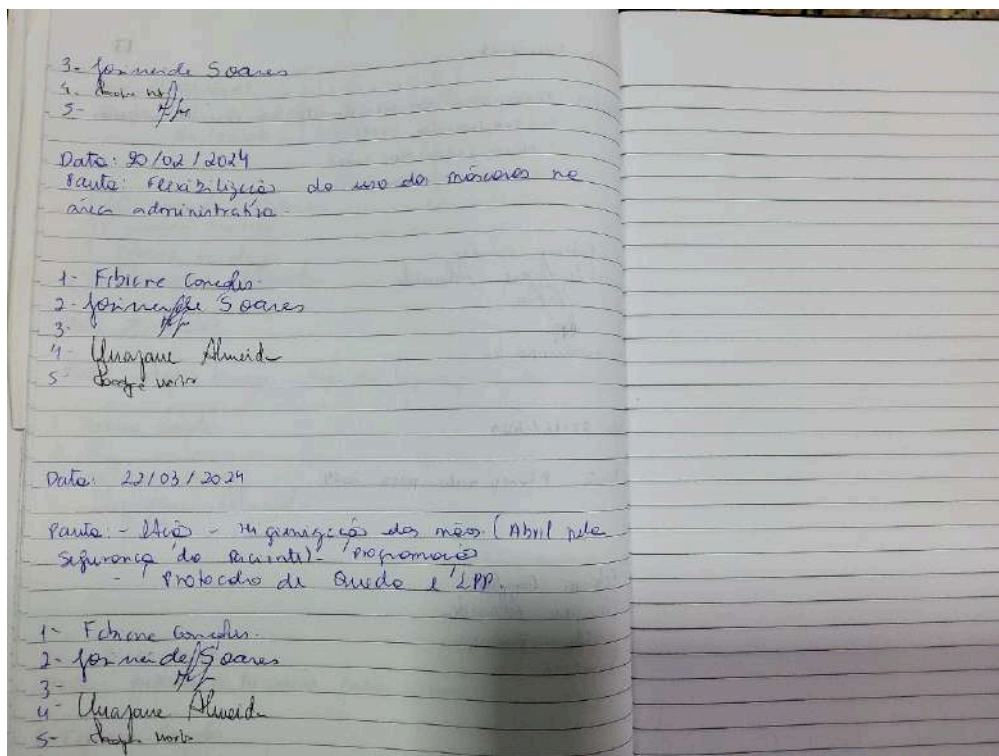 3- Josineide Soares
4-
5-
Data: 20/02/2024
Pauta: Flexibilização do uso das máscaras na
área administrativa.
1- Fabiane
2- Josineide Soares
3-
4- Almeida
5-
Data: 22/03/2024
Pauta: - Ação - Higienização das mãos (Abril pela
Segurança do Paciente) - Programação
- Protocolo de Queda e LPP.
1- Fabiane
2- Josineide Soares
3-
4- Almeida
5-